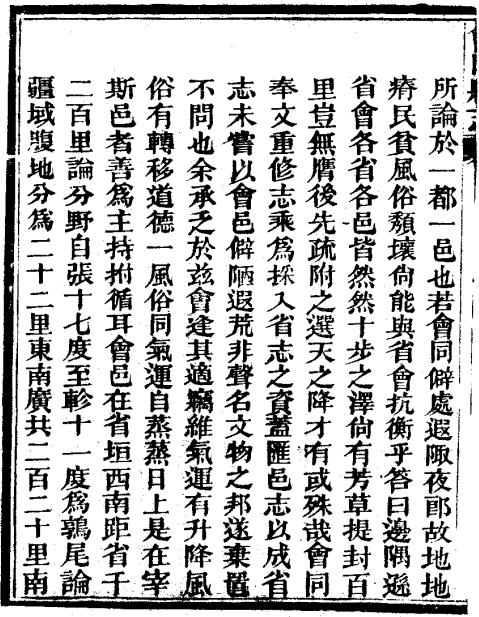 所論於一都一邑也若會同僻處遐陬夜郎故地地
瘠民貧風俗頹壞尙能與省會抗衡乎答曰邊隅遜
省會各省各邑皆然然十步之澤尙有芳草提封百
里豈無膺後先疏附之選天之降才有或殊哉會同
奉文重修志乘爲採入省志之資蓋匯邑志以成省
志未嘗以會邑僻陋遐荒非聲名文物之邦遂棄置
不問也余承乏於兹會逢其適竊維氣運有升降風
俗有轉移道德一風俗同氣運自蒸蒸日上是在宰
斯邑者善爲主持拊循耳會邑在省垣西南距省千
二百里論分野自張十七度至軫十一度爲鶉尾論
疆域腹地分爲二十二里東南廣共二百二十里南